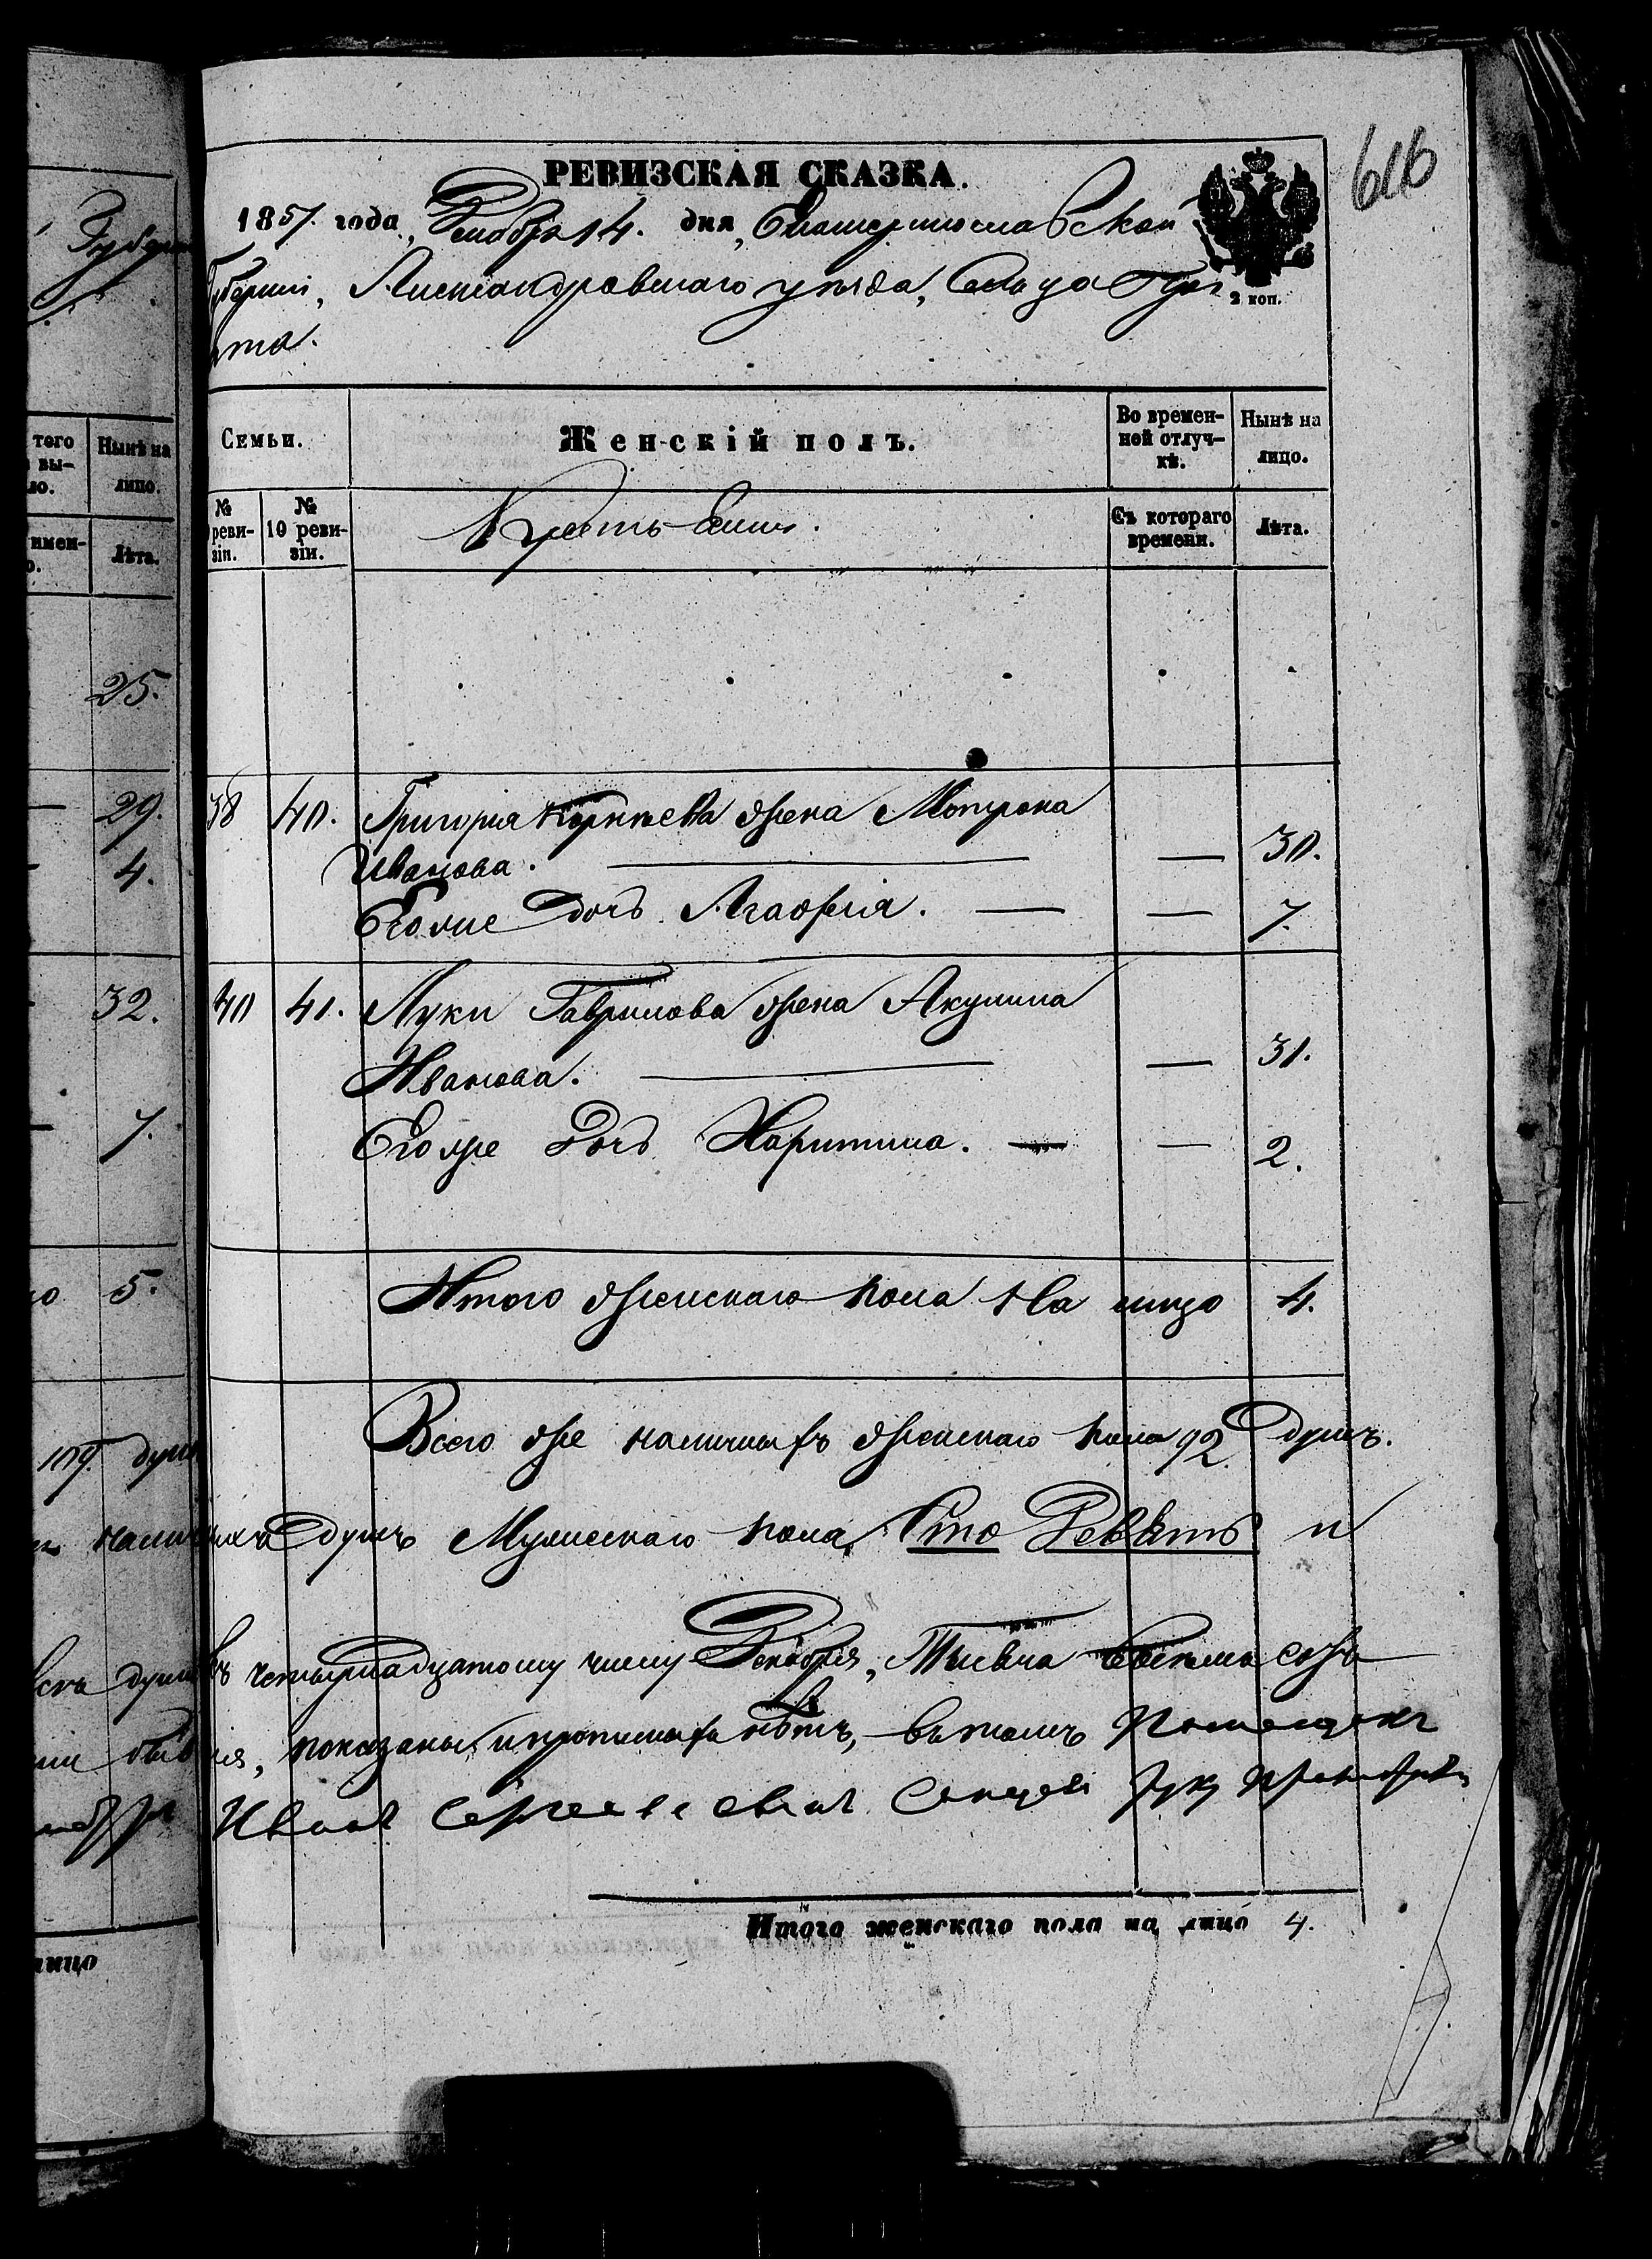 616
РЕВИЗСКАЯ СКАЗКА.
1857. года, Декабря 14. дня, Екатеринославской
Губерніи, Александровскаго уѣзда, Сельца
та.
2 коп.
Семьи.
Женскій полъ.
Во времен-
ной отлуч-
кѣ.
Нынѣ на
лицо.
№
реви-
зіи.
№
10 реви-
зіи.
Крестьяне.
Съ котораго
времени.
Лѣта.
38 40. Григорія Корнѣева жена Мотрона
Иванова. — — 30.
Его же дочь Агафія. — — 7.
40 41. Луки Гаврилова жена Акулина
Иванова. — — 31.
Его же дочь Харитина. — — 2.
Итого женскаго пола на лицо 4.
Всего же наличныхъ женскаго пола 92 душъ.
наличныхъ душъ Мужескаго пола, Сто Девять и
четырнадцатому числу Декабря, Тысяча восемь сотъ
показаны и прописныхъ нѣтъ, въ томъ Помещикъ
Иванъ Сергеевъ сынъ руку приложилъ
Итого женскаго пола на лицо 4.
Губерн
того
вы-
ло.
Нынѣ на
лицо.
имен-
о.
Лѣта.
25.
— 29.
— 4.
32.
— 7.
о 5.
109. душ
лицо